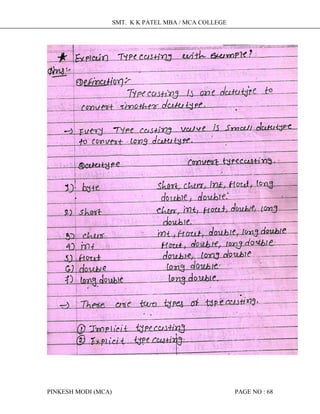 SMT. K K PATEL MBA / MCA COLLEGE
★ Explain Type casting with example?
Ans:-
Definition:-
Type casting is one datatype to
convert another datatype.
→ Every Type casting value is small datatype
to convert long datatype.
Datatype Convert typecasting.
1) byte short, char, int, float, long
double, double.
2) short char, int, float, double, long
double.
3) char int, float, double, long double
4) int float, double, long double
5) float double, long double
6) double long double
7) long double long double.
→ These are two types of type casting.
① Implicit typecasting
② Explicit type casting.
PINKESH MODI (MCA) PAGE NO : 68